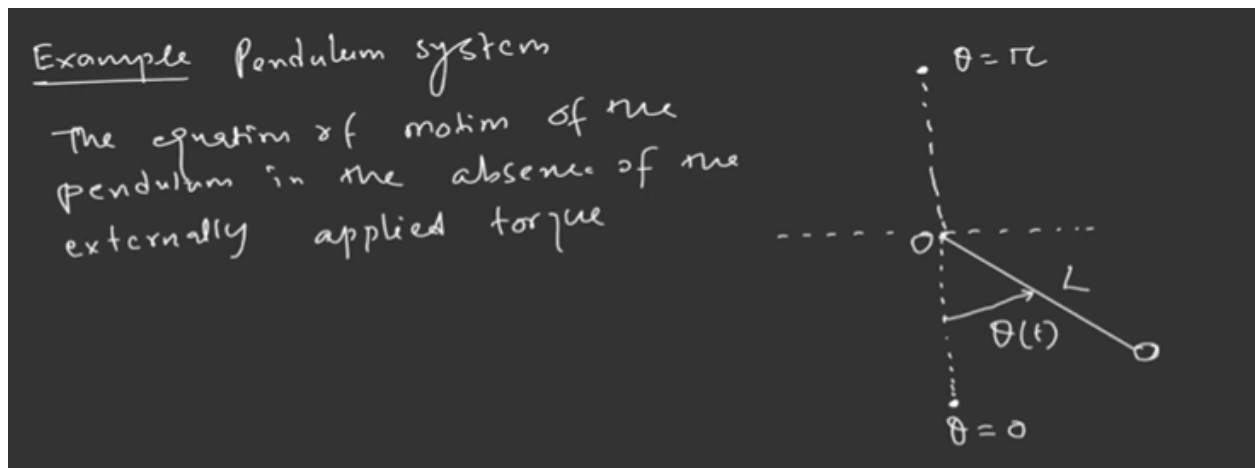 Example Pendulum system
The equation of motion of the
pendulum in the absence of the
externally applied torque
θ = π
O
L
θ(t)
θ = 0